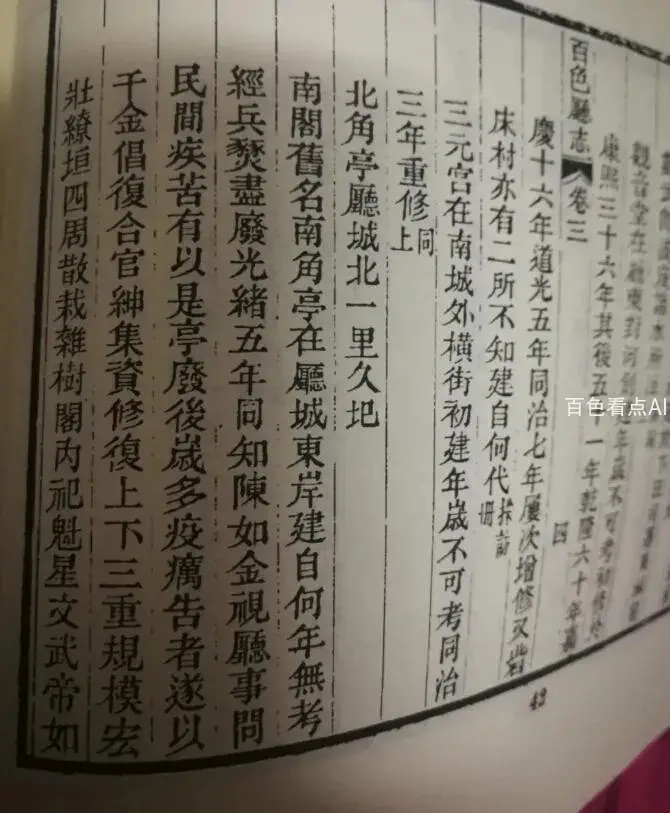 觀音堂在
康熙三十六年其後五十一年乾隆六十年嘉
百色廳志 卷三 四
慶十六年道光五年同治七年屢次增修又
床村亦有二所不知建自何代採訪冊
三元宮在南城外橫街初建年歲不可考同治
三年重修同上
北角亭廳城北一里久圮
南閣舊名南角亭在廳城東岸建自何年無考
經兵燹盡廢光緒五年同知陳如金視廳事問
民間疾苦有以是亭廢後歲多疫癘告者遂以
千金倡復合官紳集資修復上下三重規模宏
壯繚垣四周散栽雜樹閣內祀魁星文武帝如
43
百色看点AI